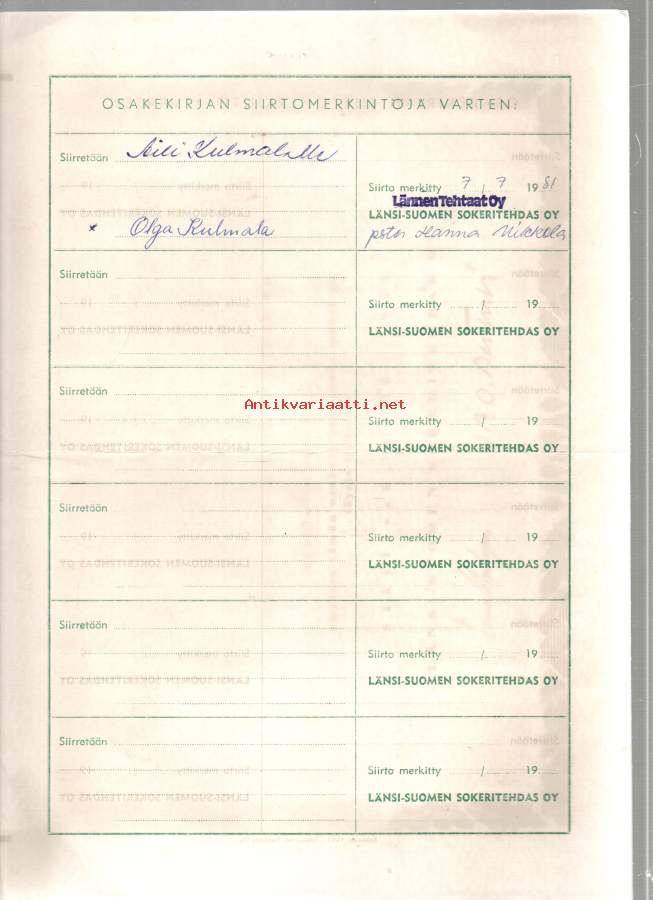 OSAKEKIRJAN SIIRTOMERKINTÖJÄ VARTEN:
Siirretään Aili Kulmalalle
Siirto merkitty 7 / 7 19 81
Lännen Tehtaat Oy
LÄNSI-SUOMEN SOKERITEHDAS OY
x Olga Kulmala
Hanna Mikkola
Siirretään
Siirto merkitty / 19
LÄNSI-SUOMEN SOKERITEHDAS OY
Siirretään
Antikvariaatti.net
Siirto merkitty / 19
LÄNSI-SUOMEN SOKERITEHDAS OY
Siirretään
Siirto merkitty / 19
LÄNSI-SUOMEN SOKERITEHDAS OY
Siirretään
Siirto merkitty / 19
LÄNSI-SUOMEN SOKERITEHDAS OY
Siirretään
Siirto merkitty / 19
LÄNSI-SUOMEN SOKERITEHDAS OY